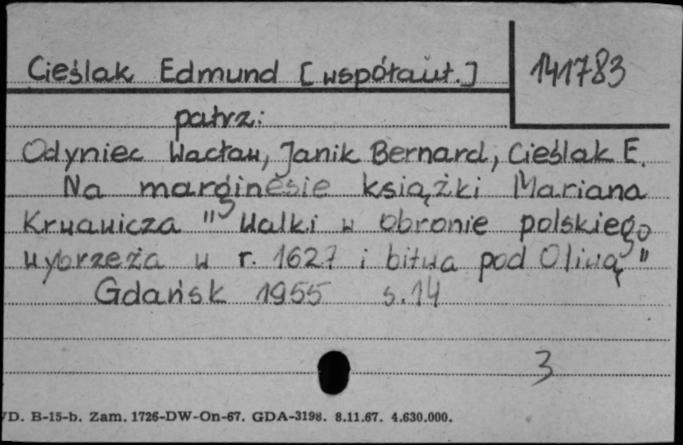 Cieślak Edmund [współaut.]
141783
patrz:
Odyniec Wacław, Janik Bernard, Cieślak E.
Na marginesie książki Mariana
Krwawicza "Walki w obronie polskiego
wybrzeża w r. 1627 i bitwa pod Oliwą"
Gdańsk 1955 s.14
3
D. B-15-b. Zam. 1726-DW-On-67. GDA-3198. 8.11.67. 4.630.000.